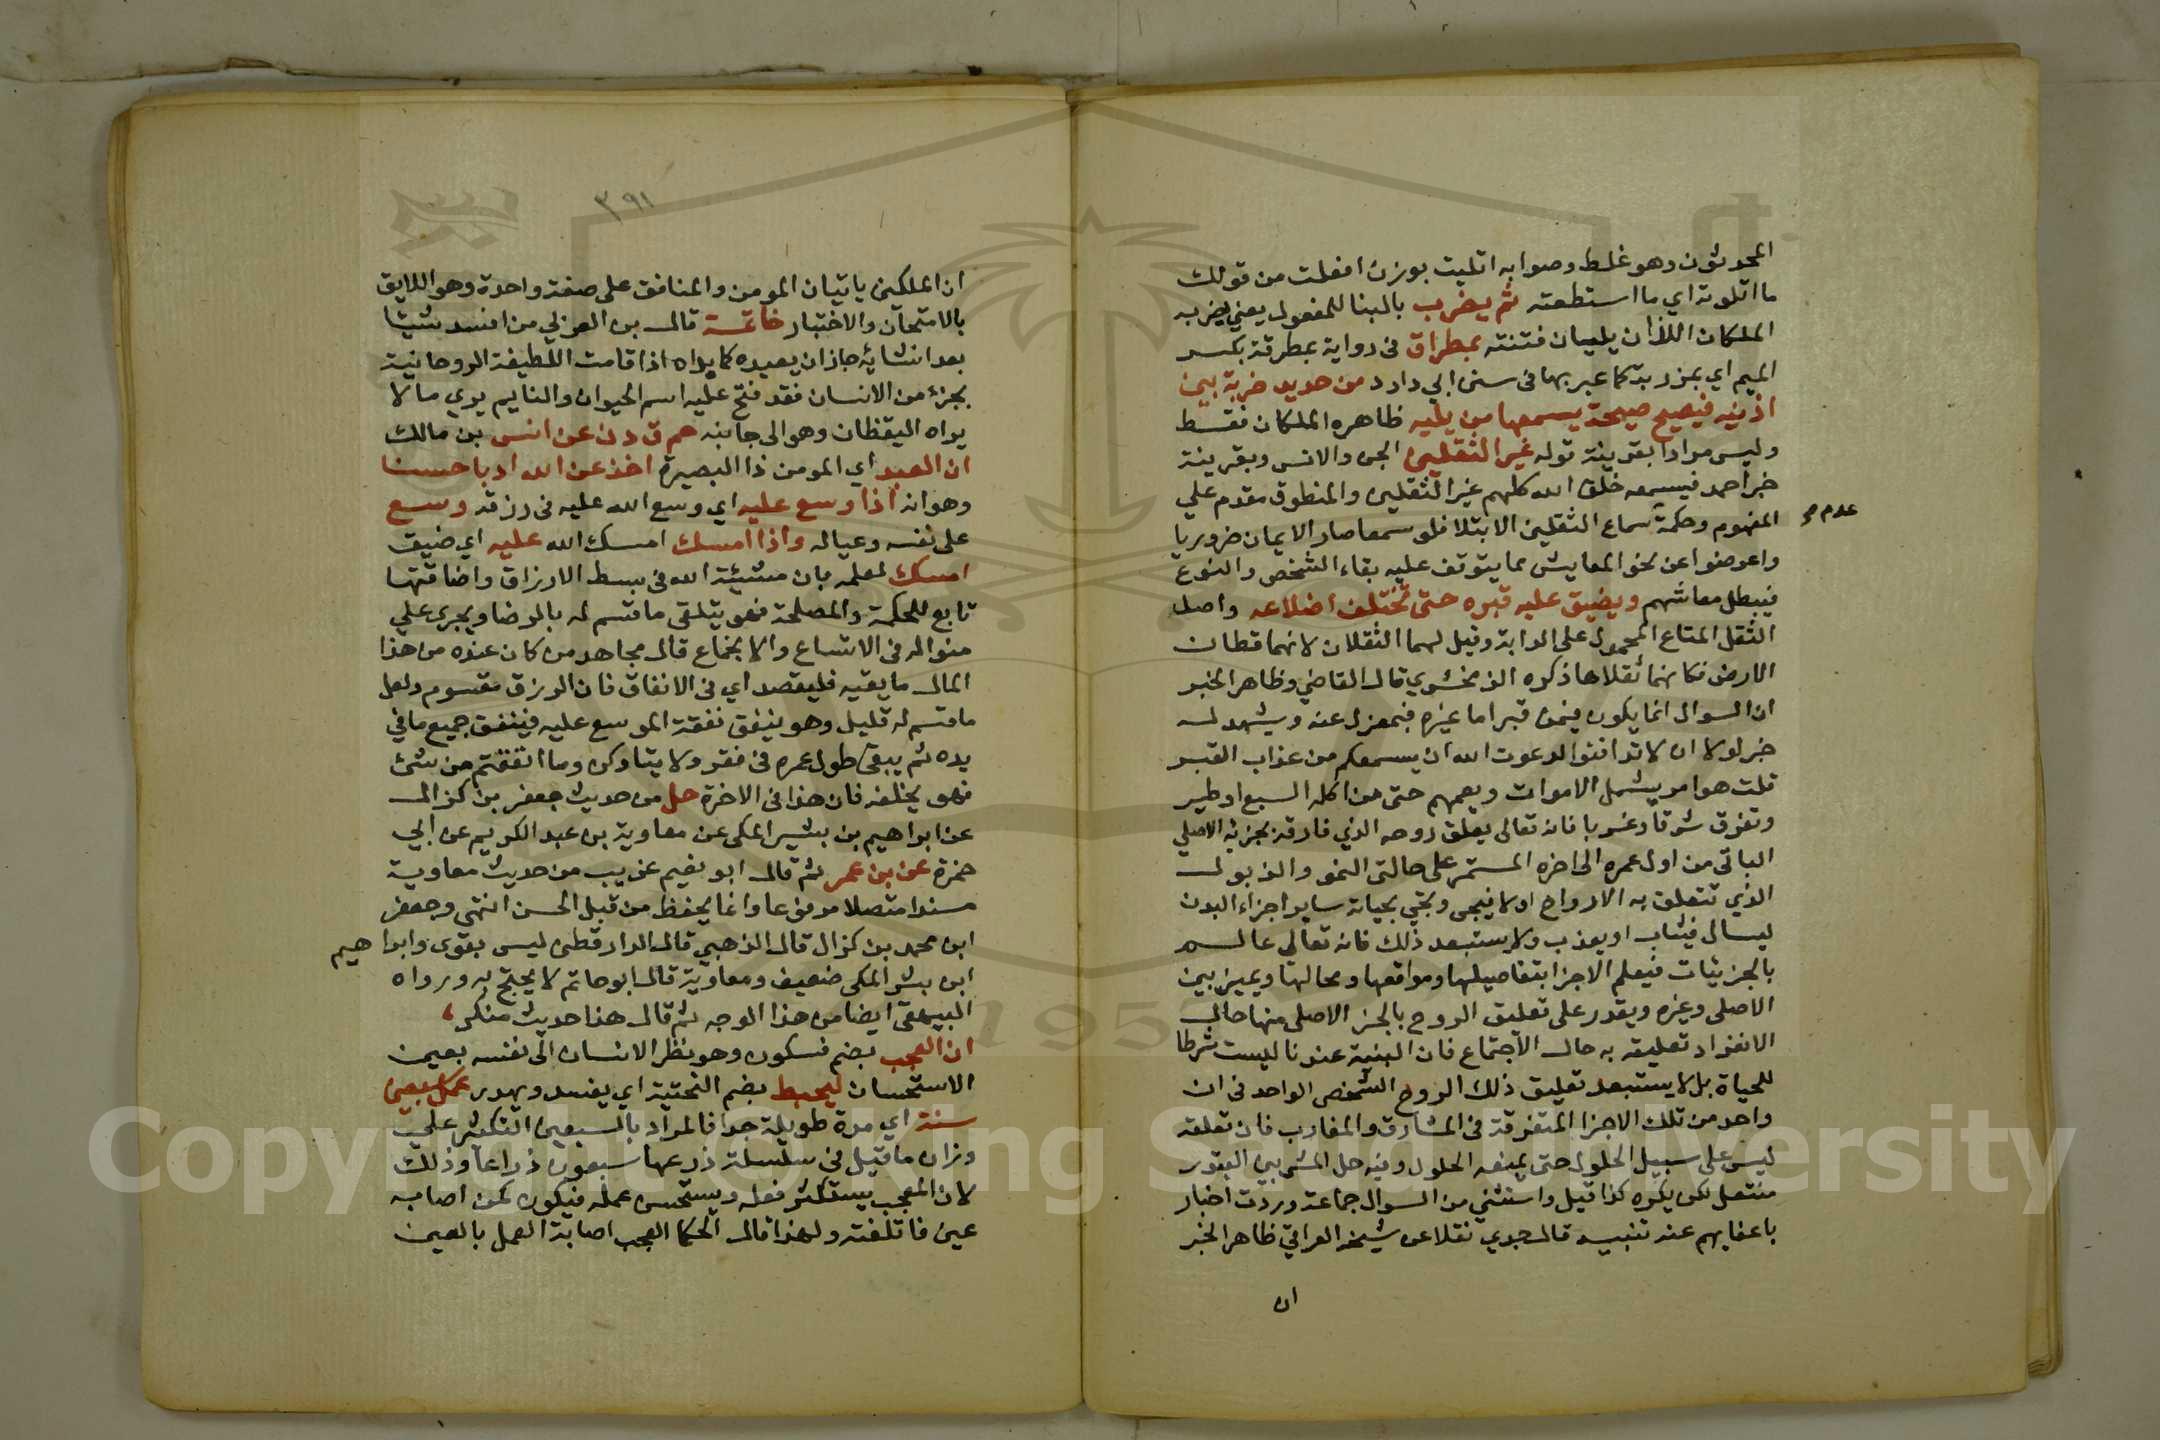 المحدثون وهو غلط وصوابه اتليت بوزن افعلت من قولك
ما اتلوته اي ما استطعته ثم يضرب بالبنا للمفعول يعني يضربه
الملكان اللذان يليان فتنته بمطراق في رواية بمطرقة بكسر
الميم اي بمزربة كما عبر بها في سنن ابي داود من حديد ضربة بين
اذنيه فيصيح صيحة يسمعها من يليه ظاهره الملكان فقط
وليس مرادا بقرينة قوله غير الثقلين الجن والانس وبقرينة
خبر احمد فيسمعه خلق الله كلهم غير الثقلين والمنطوق مقدم علي
المفهوم وحكمة سماع الثقلين الابتلا فلو سمعا صار الايمان ضروريا
عدم صح
واعرضوا عن نحو المعايش مما يتوقف عليه بقاء الشخص والنوع
فيبطل معاشهم ويضيق عليه قبره حتى تختلف اضلاعه واصل
الثقل المتاع المحمول على الدابة وقيل لهما الثقلان لانهما قطان
الارض فكانهما ثقلاها ذكره الزمخشري قال القاضي وظاهر الخبر
ان السوال انما يكون فيمن قبر اما غيره فبمعزل عنه ويشهد له
خبر لولا ان لا تدافنوا لدعوت الله ان يسمعكم من عذاب القبر
قلت هو امر يشمل الاموات ويعمهم حتى من اكله السبع او طير
وتفرق شرقا وغربا فانه تعالى يعلق روحه الذي فارقه بجزئه الاصلي
الباقي من اول عمره الى اخره المستمر على حالتى النمو والذبول
الذي تتعلق به الارواح اولا فيحى ويحيى بحياته ساير اجزاء البدن
ليسال فيثاب او يعذب ولا يستبعد ذلك فانه تعالى عالم
بالجزئيات فيعلم الاجزا بتفاصيلها ومواقعها ومحالها ويميز بين
الاصلى وغيره ويقدر على تعليق الروح بالجز الاصلى منها حال
الانفراد تعليقه به حال الاجتماع فان البنية عندنا ليست شرطا
للحياة بل لا يستبعد تعليق ذلك الروح الشخصى الواحد في ان
واحد من تلك الاجزا المتفرقة في المشارق والمغارب فان تعلقه
ليس على سبيل الحلول حتى يمنعه الحلول وفيه حل المشربين القبور
منتعل لكن يكره كذا قيل واستثني من السوال جماعة وردت اخبار
باعفايهم عنه تنبيه قال جدي نقلا عن شيخه العراقي ظاهر الخبر
ان
٣٩١
ان الملكين ياتيان المومن والمنافق على صفة واحدة وهو اللايق
بالامتحان والاختبار خاتمة قال بن العربي من افسد شيئا
بعد انشائه جاز ان يعيده كما بداه اذا قامت اللطيفة الروحانية
بجزء من الانسان فقد فتح عليه اسم الحيوان والنايم يري ما لا
يراه اليقظان وهو الى جانبه حم ق د ن عن انس بن مالك
ان العبد اي المومن ذا البصيرة اخذ عن الله ادبا حسنا
وهو انه اذا وسع عليه اي وسع الله عليه في رزقه وسع
على نفسه وعياله واذا امسك امسك الله عليه اي ضيق
امسك لعلمه بان مشيئة الله في بسط الارزاق واضاقتها
تابع للحكمة والمصلحة فهو يتلقى ما قسم له بالرضا ويجرى علي
منواله في الاتساع والانجماع قال مجاهد من كان عنده من هذا
المال ما يقيه فليقصد اي في الانفاق فان الرزق مقسوم ولعل
ما قسم له قليل وهو ينفق نفقة الموسع عليه فينفق جميع ما في
يده ثم يبقى طول عمره في فقر ولا يتاولن وما انفقتم من شئ
فهو يخلفه فان هذا في الاخرة حل من حديث جعفر بن كزال
عن ابراهيم بن بشير المكى عن معاوية بن عبد الكريم عن ابي
حمزة عن بن عمر ثم قال ابو نعيم غريب من حديث معاوية
مسندا متصلا مرفوعا وانما يحفظ من قبل الحسن انتهى وجعفر
ابن محمد بن كزال قال الذهبي قال الدارقطنى ليس بقوى وابراهيم
ابن بشر المكى ضعيف ومعاوية قال ابو حاتم لا يحتج به ورواه
البيهقى ايضا من هذا الوجه ثم قال هذا حديث منكر
ان العجب بضم فسكون وهو نظر الانسان الى نفسه بعين
الاستحسان ليحبط بضم التحتية اي يفسد ويهدر عمل سبعين
سنة اي مدة طويلة جدا فالمراد بالسبعين التكثير علي
وزان ما قيل في سلسلة ذرعها سبعون ذراعا وذلك
لان المعجب يستكثر فعله ويستحسن عمله فيكون كمن اصابه
عين فاتلفته ولهذا قال الحكما العجب اصابة العمل بالعين
Copyright © King Saud University
1957